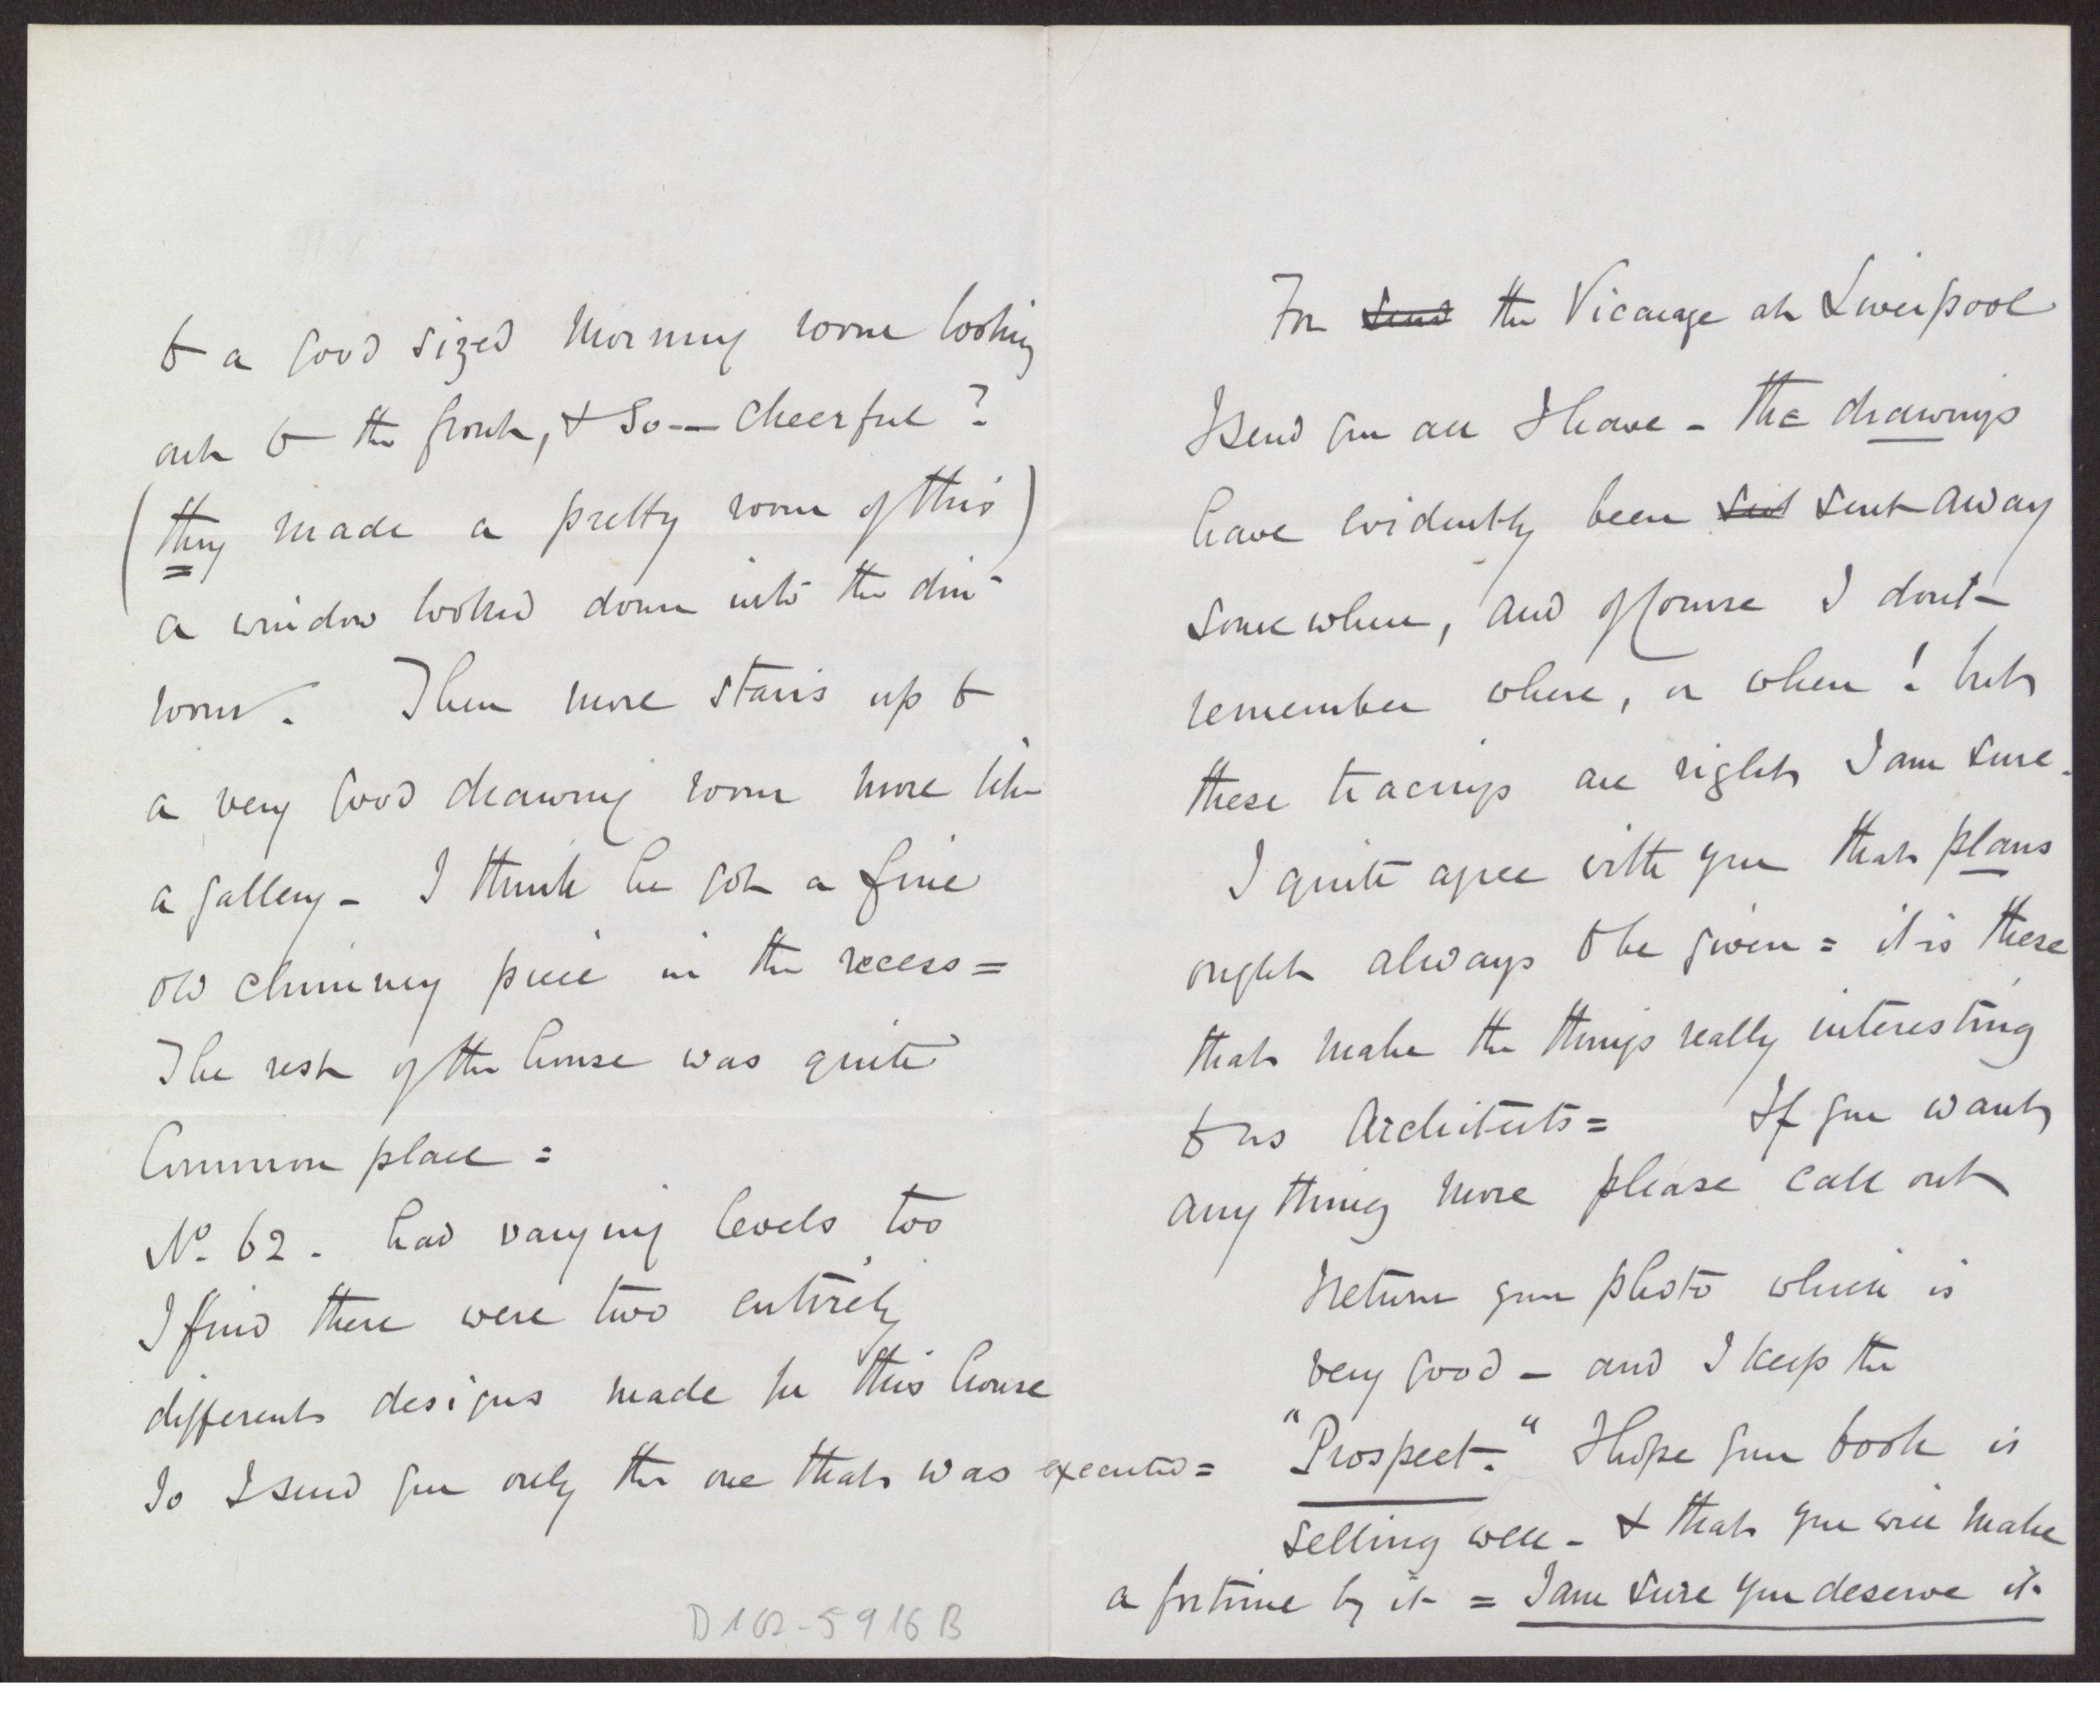 to a good sized Morning room looking
out to the front, & so -- cheerful?
(they made a pretty room of this)
a window looked down into the din-
room. Then more stairs up to
a very good drawing room more like
a gallery - I think he got a fine
old chimney piece in the recess =
The rest of the house was quite
Common place =
No. 62. had varying levels too
I find there were two entirely
different designs made for this house
So I send you only the one that was executed =
For send the Vicarage at Liverpool
I send you all I have - The drawings
have evidently been sent sent away
somewhere, and of course I dont
remember where, or when! but
these tracings are right I am sure.
I quite agree with you that plans
ought always to be given = it is these
that make the things really interesting
to us Architects = If you want
any thing more please call out
I return your photo which is
very good - and I keep the
"Prospect." I hope your book is
selling well - & that you will make
a fortune by it = I am sure you deserve it.
D 102-5916 B